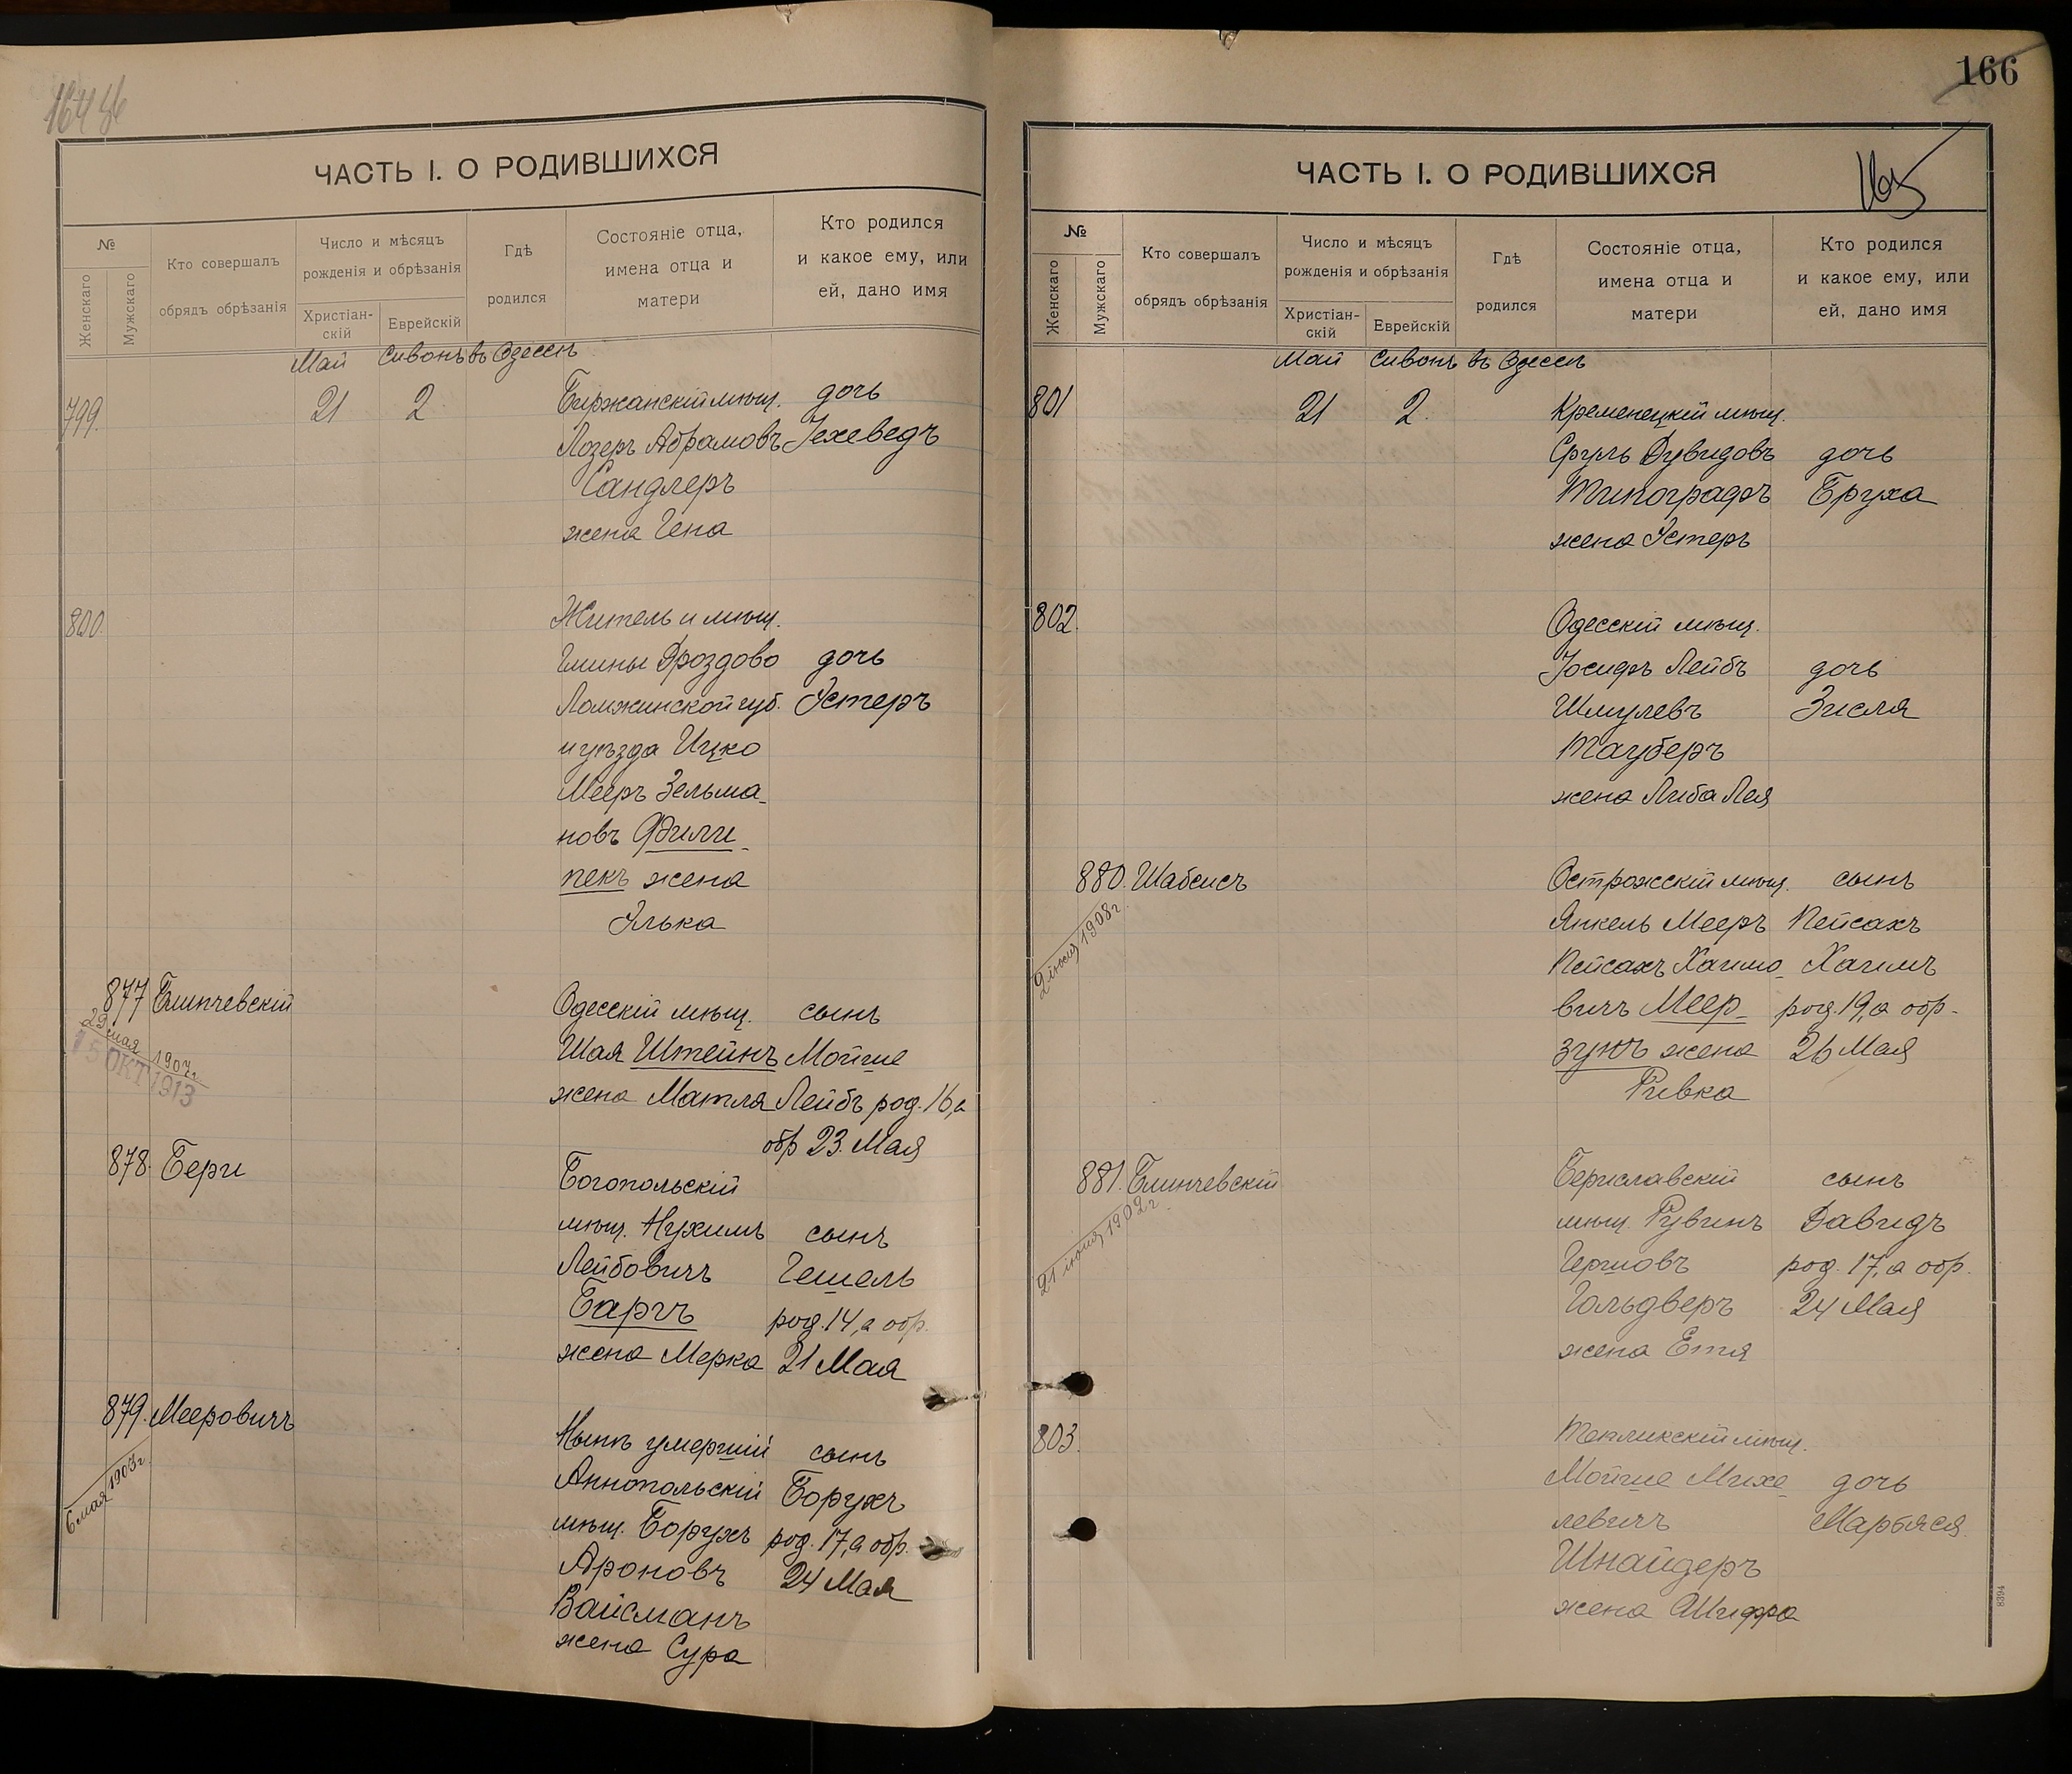 164 об
ЧАСТЬ I. О РОДИВШИХСЯ
№
Женскаго
Мужскаго
Кто совершалъ
обрядъ обрѣзанія
Число и мѣсяцъ
рожденія и обрѣзанія
Христіан-
скій
Еврейскій
Гдѣ
родился
Состояніе отца,
имена отца и
матери
Кто родился
и какое ему, или
ей, дано имя
Май Сивонъ въ Одессѣ
799. 21 2 Биржанскій мѣщ. дочь
Лозеръ Абрамовъ Іехеведъ
Сандлеръ
жена Гена
800. Житель и мѣщ.
Гмины Дроздово дочь
Ломжинской губ. Эстеръ
и уѣзда Ицко
Мееръ Зельма-
новъ Филли-
пекъ жена
Элька
877 Блинчевскій Одесскій мѣщ. сынъ
29 мая 1907 г.
15 ОКТ 1913
Шая Штейнъ Мойше
жена Матля Лейбъ род. 16, а
обр 23. Мая
878. Бери Богопольскій
мѣщ. Нухимъ сынъ
Лейбовичъ Гешель
Баргъ род. 14, а обр.
жена Мерка 21 Мая
879. Мееровичъ Нынѣ умершій сынъ
6 мая 1903 г.
Аннопольскій Борухъ
мѣщ. Борухъ род. 17, а обр.
Ароновъ 24 Мая
Вайсманъ
жена Сура
166
165
ЧАСТЬ I. О РОДИВШИХСЯ
№
Женскаго
Мужскаго
Кто совершалъ
обрядъ обрѣзанія
Число и мѣсяцъ
рожденія и обрѣзанія
Христіан-
скій
Еврейскій
Гдѣ
родился
Состояніе отца,
имена отца и
матери
Кто родился
и какое ему, или
ей, дано имя
Май Сивонъ въ Одессѣ
801 21 2. Кременецкій мѣщ.
Сруль Дувидовъ дочь
Типографъ Бруха
жена Эстеръ
802. Одесскій мѣщ.
Іосифъ Лейбъ дочь
Шмулевъ Зисля
Тауберъ
жена Либа Лея
880. Шабсисъ Острожскій мѣщ. сынъ
2 іюля 1908 г.
Янкель Мееръ Пейсахъ
Пейсахъ Хаимо- Хаимъ
вичъ Меер- род. 19, а обр-
зунъ жена 26 Мая
Ривка
881. Блинчевскій Бериславскій сынъ
21 іюня 1902 г.
мѣщ. Рувинъ Давидъ
Гершовъ род. 17, а обр.
Гольдверъ 24 Мая
жена Етя
803. Тепликскій мѣщ.
Мойше Михе- дочь
левичъ Марьяся.
Шнайдеръ
жена Шифра
8394